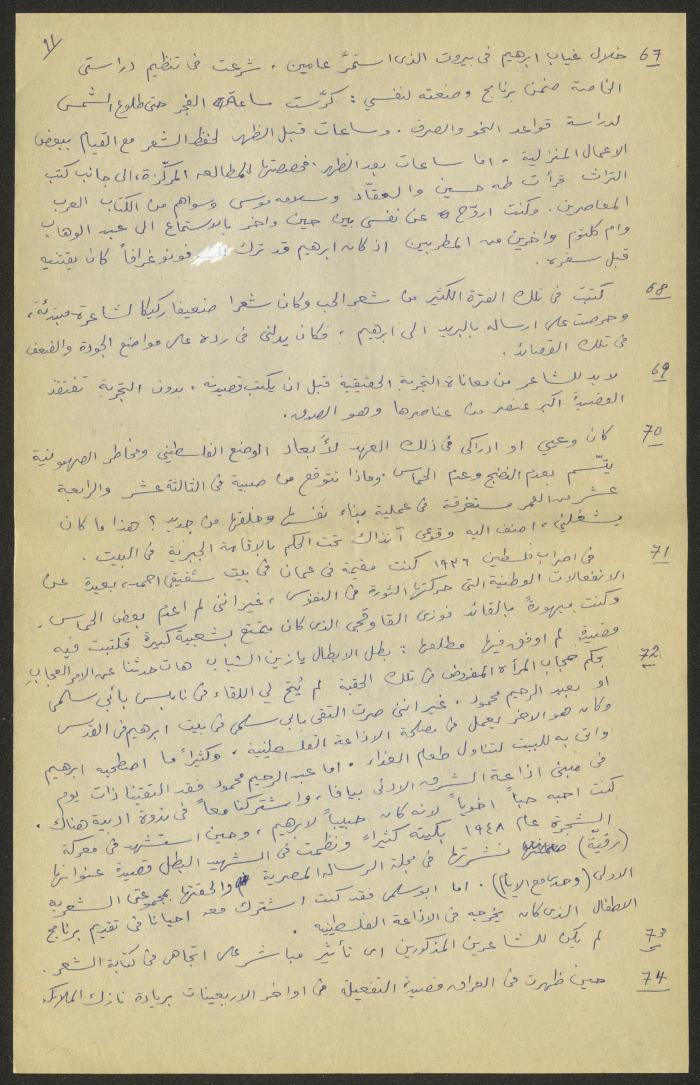 11
67 خلال غياب ابرهيم في بيروت الذي استمرَّ عامين، شرعت في تنظيم دراستي
الخاصة ضمن برنامج وضعته لنفسي: كرّست ساعة الفجر حتى طلوع الشمس
لدراسة قواعد النحو والصرف. وساعات قبل الظهر لحفظ الشعر مع القيام ببعض
الاعمال المنزلية، اما ساعات بعد الظهر فخصصتها للمطالعه المركّزة، الى جانب كتب
التراث قرأت طه حسين والعقاد وسلامه موسى وسواهم من الكتاب العرب
المعاصرين. وكنت اروّح عن نفسي بين حين وآخر بالاستماع الى عبد الوهاب
وام كلثوم وآخرين من المطربين اذ كان ابرهيم قد ترك فونوغرافاً كان يقتنيه
قبل سفره.
68 كتبت في تلك الفترة الكثير من شعر الحب وكان شعرا ضعيفا ركيكا لشاعرة مبتدئة،
وحرصت على ارساله بالبريد الى ابرهيم، فكان يدلني في رده على مواضع الجودة والضعف
في تلك القصائد.
69 لا بد للشاعر من معاناة التجربة الحقيقية قبل ان يكتب قصيدته، بدون التجربة تفتقد
القصيدة اكبر عنصر من عناصرها وهو الصدق.
70 كان وعيي او ادراكي في ذلك العهد لأبعاد الوضع الفلسطيني ومخاطر الصهيونية
يتّسم بعدم النضج وعدم الحماس. وماذا نتوقع من صبية في الثالثة عشر والرابعة
عشر من العمر مستغرقة في عملية بناء نفسها وخلقها من جديد؟ هذا ما كان
يشغلني، اضف اليه وقوعي آنذاك تحت الحكم بالاقامة الجبرية في البيت.
71 في اضراب فلسطين ١٩٣٦ كنت مقيمة في عمان في بيت شقيقي احمد، بعيدة عن
الانفعالات الوطنية التي حركتها الثورة في النفوس، غير انني لم اعدم بعض الحماس.
وكنت مبهورةً بالقائد فوزي القاوقجي الذي كان يتمتع بشعبية كبيرة فكتبت فيه
قصيدة لم اوفق فيها مطلعها: بطل الابطال يا زين الشباب هات حدثنا عن الامر العجاب
72 بحكم حجاب المرأة المفروض في تلك الحقبة لم يُتح لي اللقاء في نابلس بأبي سلمى
او بعبد الرحيم محمود، غير انني صرت التقي بابي سلمى في بيت ابرهيم في القدس
وكان هو الآخر يعمل في مصلحة الاذاعة الفلسطينية، وكثيراً ما اصطحبه ابرهيم
واتى به للبيت لتناول طعام الغداء. اما عبد الرحيم محمود فقد التقينا ذات يوم
في مبنى اذاعة الشرق الادنى بيافا، واشتركنا معاً في ندوة ادبية هناك.
كنت احبه حباً اخوياً لانه كان حبيباً لابرهيم، وحين استشهد في معركة
الشجرة عام ١٩٤٨ بكيته كثيراً ونظمت في الشهيد البطل قصيدة عنوانها
(رقيّة) نشرتها في مجلة الرساله المصرية والحقتها بمجموعتي الشعرية
الاولى (وحدي مع الايام). اما ابو سلمى فقد كنت اشترك معه احيانا في تقديم برنامج
الاطفال الذي كان يخرجه في الاذاعة الفلسطينيه.
73 لم يكن للشاعرين المذكورين اي تأثير مباشر على اتجاهي في كتابة الشعر.
74 حين ظهرت في العراق قصيدة التفعيلة في اواخر الاربعينات بريادة نازك الملائكة